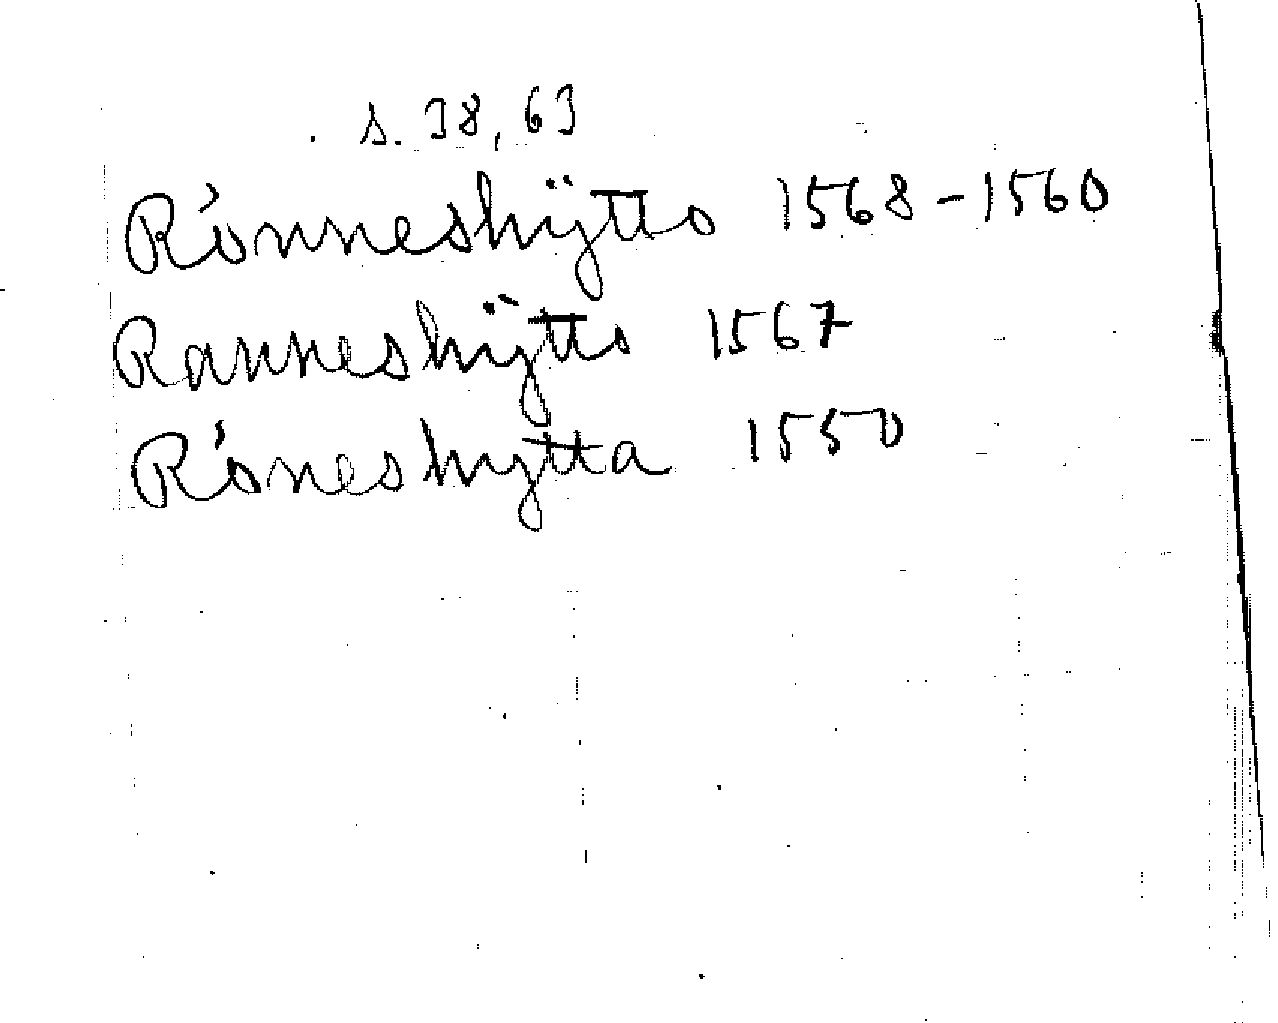 s. 38, 63
Rónneshÿtto 1568-1560
Ranneshÿtto 1567
Róneshytta 1550